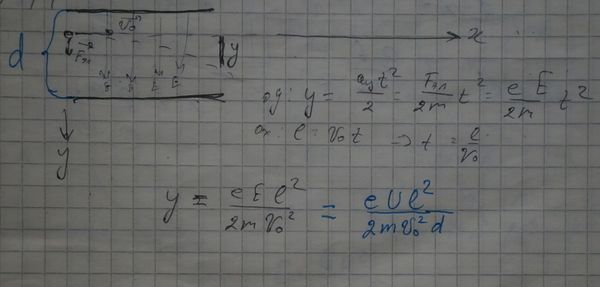 v₀
x
d
Fэл
y
E E E E
oy: y = ayt²/2 = Fэл/2m t² = eE/2m t²
ox: l = v₀t → t = l/v₀
y
y = eEl²/2mv₀² = eUl²/2mv₀²d